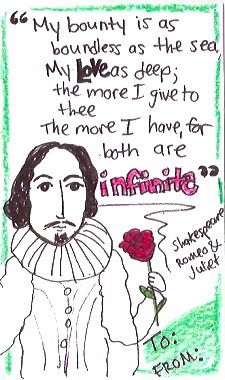 "My bounty is as
boundless as the sea,
My Love as deep;
the more I give to
thee
The more I have, for
both are
infinite"
Shakespeare
Romeo &
Juliet
To:
FROM: